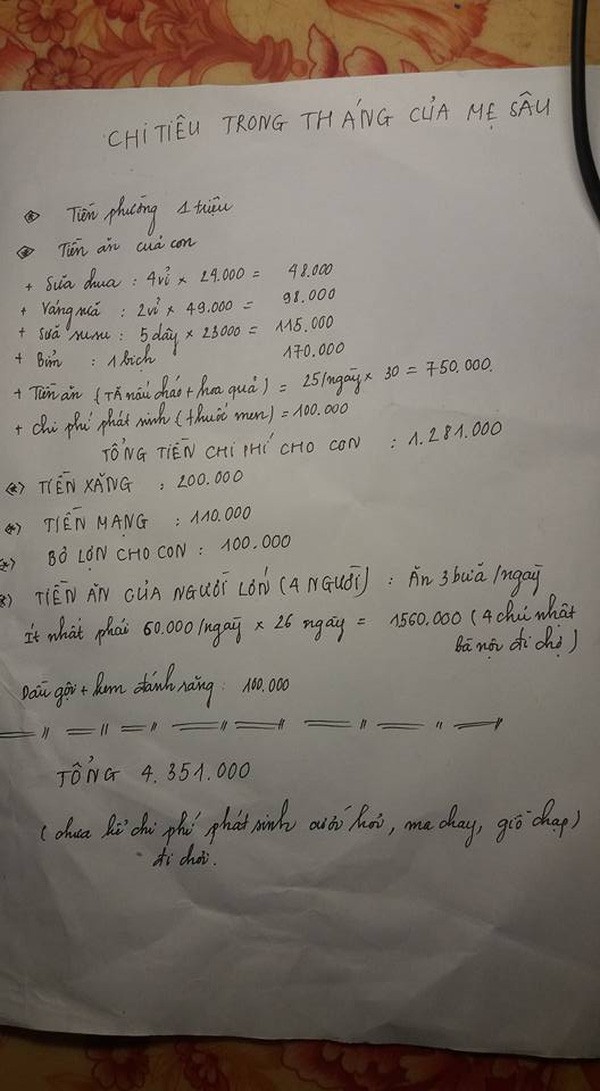 CHI TIÊU TRONG THÁNG CỦA MẸ SÂU
Tiền phường 1 triệu
Tiền ăn cuả con
+ Sữa chua : 4 vỉ x 24.000 = 48.000
+ Váng sữa : 2 vỉ x 49.000 = 98.000
+ Sữa susu : 5 dây x 23000 = 115.000
+ Bỉm : 1 bịch 170.000
+ Tiền ăn (TĂ nấu cháo + hoa quả) = 25/ngày x 30 = 750.000.
+ chi phí phát sinh (thuốc men) = 100.000
TỔNG TIỀN CHI PHÍ CHO CON : 1.281.000
(*) TIỀN XĂNG : 200.000
(*) TIỀN MẠNG : 110.000
(*) BỎ LỢN CHO CON : 100.000
(*) TIỀN ĂN CỦA NGƯỜI LỚN (4 NGƯỜI) : Ăn 3 bữa /ngày
Ít nhất phải 60.000/ngày x 26 ngày = 1560.000 (4 chủ nhật
bà nội đi chợ)
Dầu gội + kem đánh răng : 100.000
TỔNG 4.351.000
(chưa kể chi phí phát sinh cưới hỏi, ma chay, giỗ chạp)
đi chơi.